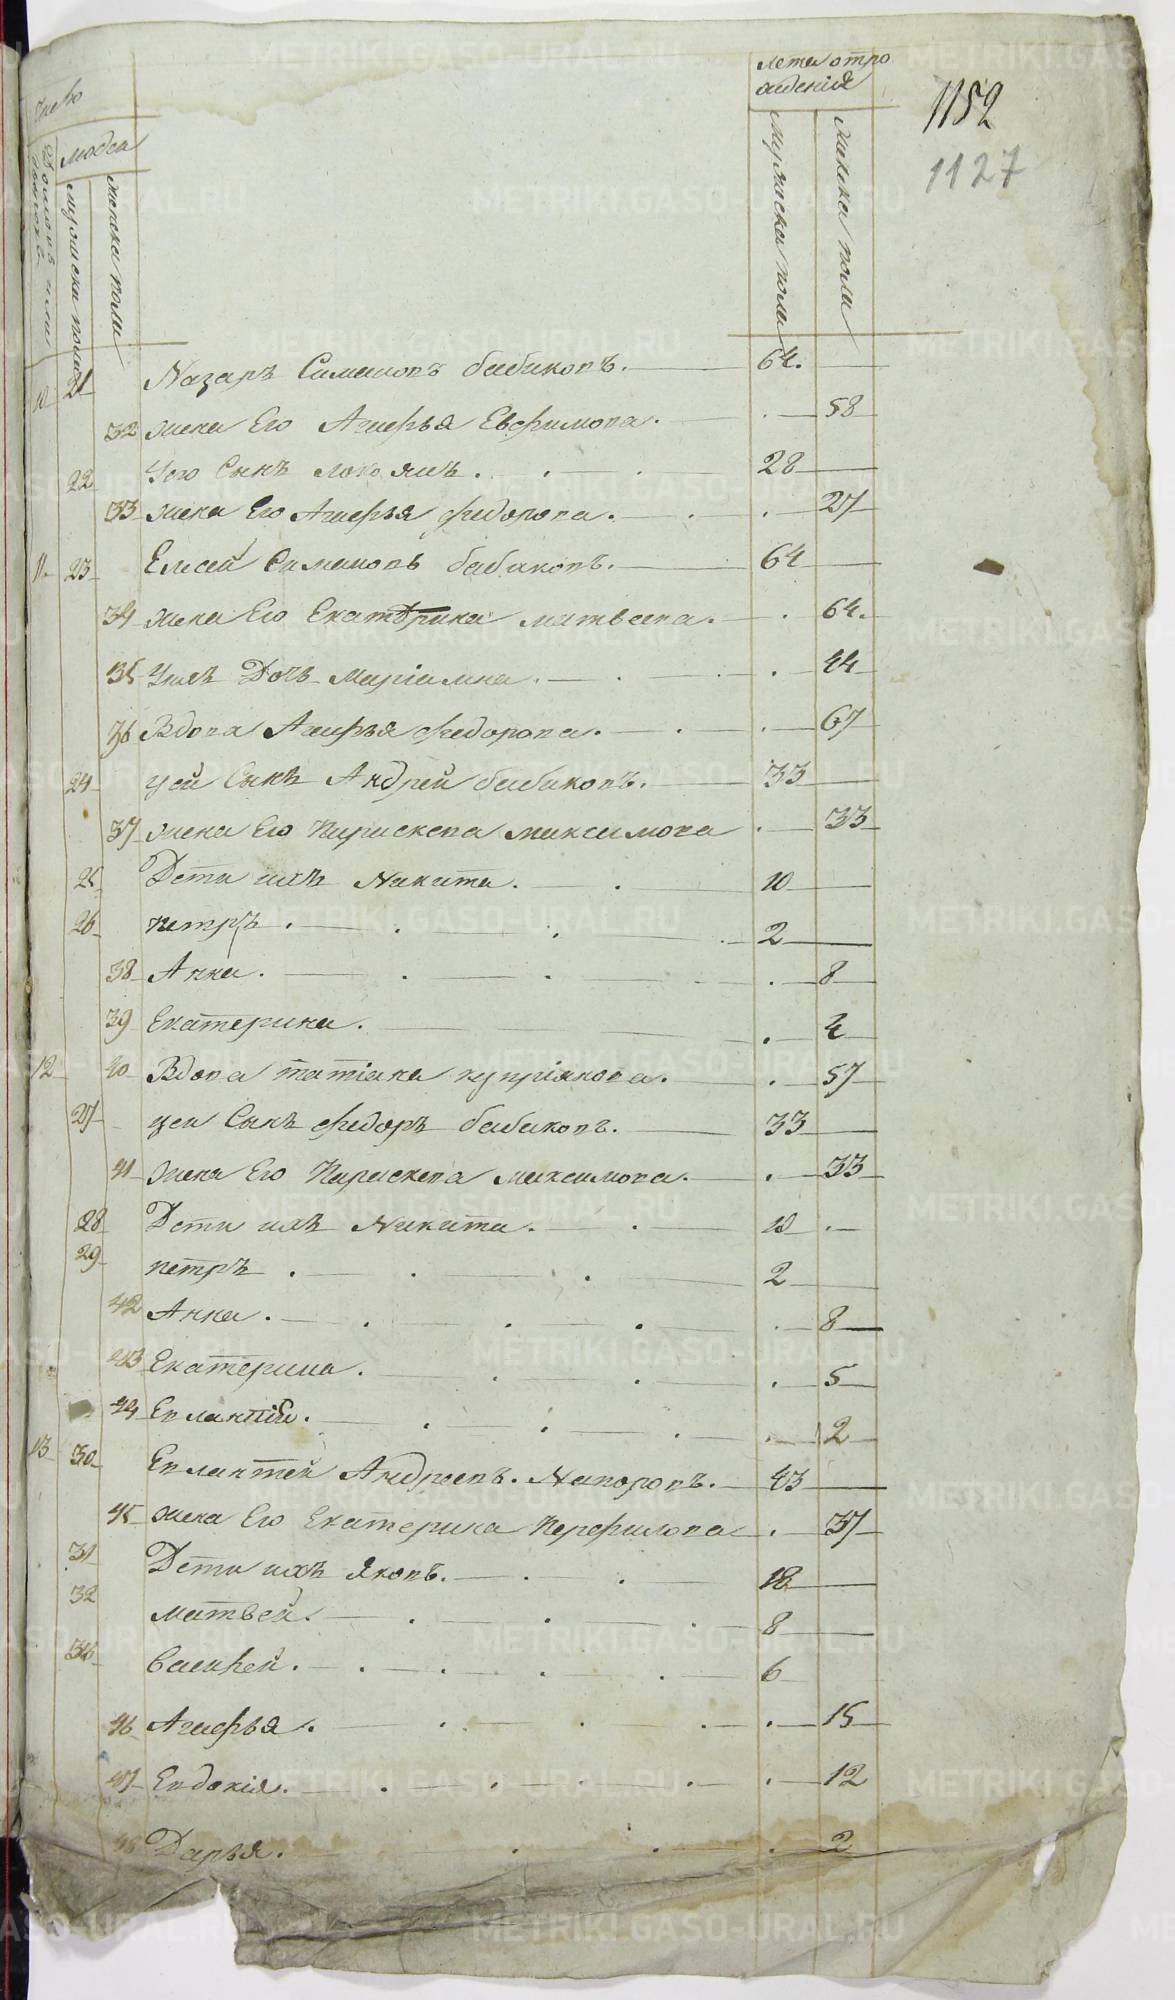 Число
людей
мужеска полу
женска полу
лета от ро
ждения
мужеска пола
женска пола
1152
1127
10 21 Назаръ Самановъ бабиковъ. 64.
32 жена Его Агафья Евфимова. 58
22 Уего Сынъ 28
33 жена Его Агафья федорова. 27
11 23 Елисей Симановъ бабиковъ. 64
34 жена Его Екатерина матвеева. 64.
35 Унихъ Дочь Маріамна. 44
36 Вдова Агафья федорова. 67
24 уей Сынъ Андрей бабиковъ. 33
37 жена Его Параскева максимова 33
25 Дети ихъ Никита. 10
26 петръ. 2
38 Анна. 8
39 Екатерина. 4
12 40 Вдова татіана купріянова. 57
27 уеи Сынъ федоръ бабиковъ. 33
41 жена Его Параскева максимова. 33
28 Дети ихъ Никита. 10
29 петръ. 2
42 Анна. 8
43 Екатерина. 5
44 2
13 30 Евлантей Андреевъ. Наворовъ. 43
45 жена Его Екатерина Перфилова 37
31 Дети ихъ Яковъ. 18
32 матвей. 8
Василей. 6
46 Агафья. 15
47 Евдокія. 12
48 Дарья. 2
METRIKI.GASO-URAL.RU